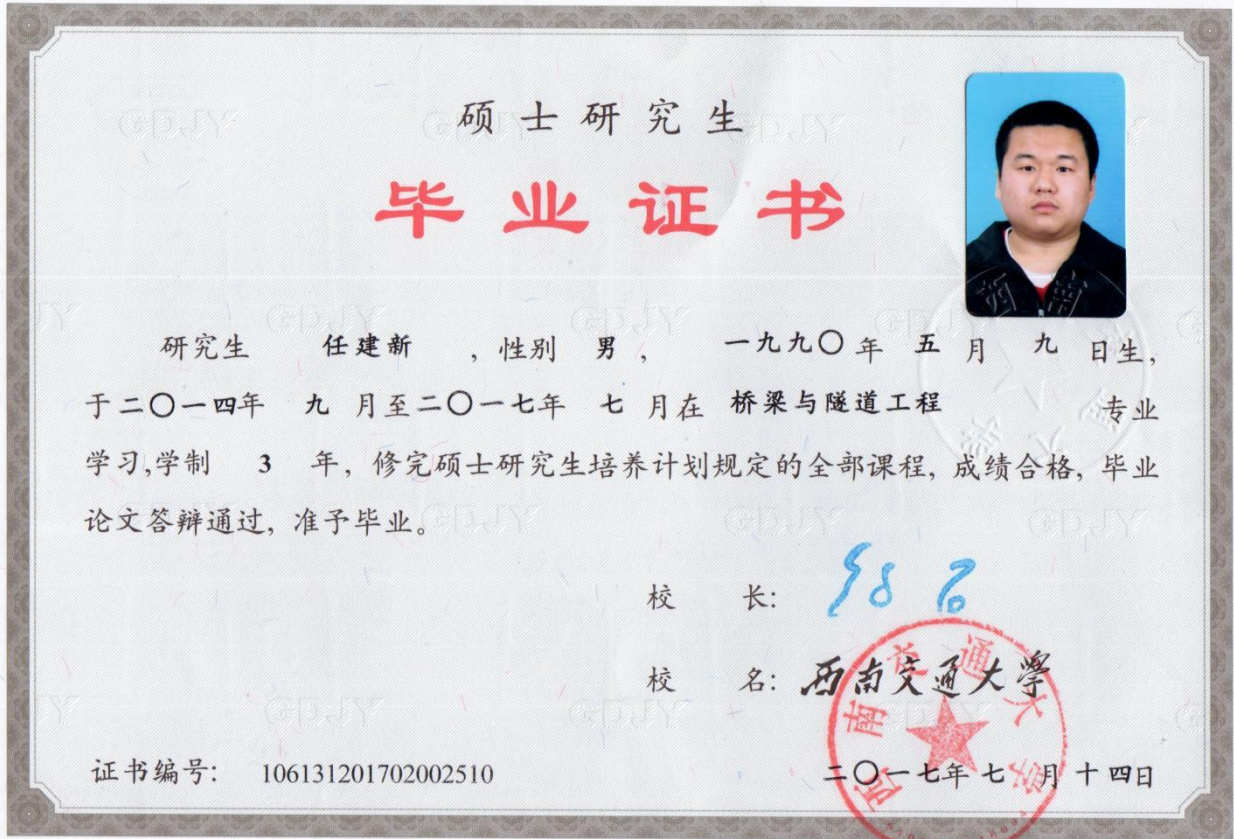 硕士研究生
毕业证书
研究生 任建新 , 性别 男 , 一九九〇 年 五 月 九 日生,
于二〇一四年 九 月至二〇一七年 七 月在 桥梁与隧道工程 专业
学习,学制 3 年, 修完硕士研究生培养计划规定的全部课程, 成绩合格, 毕业
论文答辩通过, 准予毕业。
校 长:
校 名: 西南交通大学
西南交通大学
证书编号: 106131201702002510
二〇一七年 七 月 十四日
GDJY